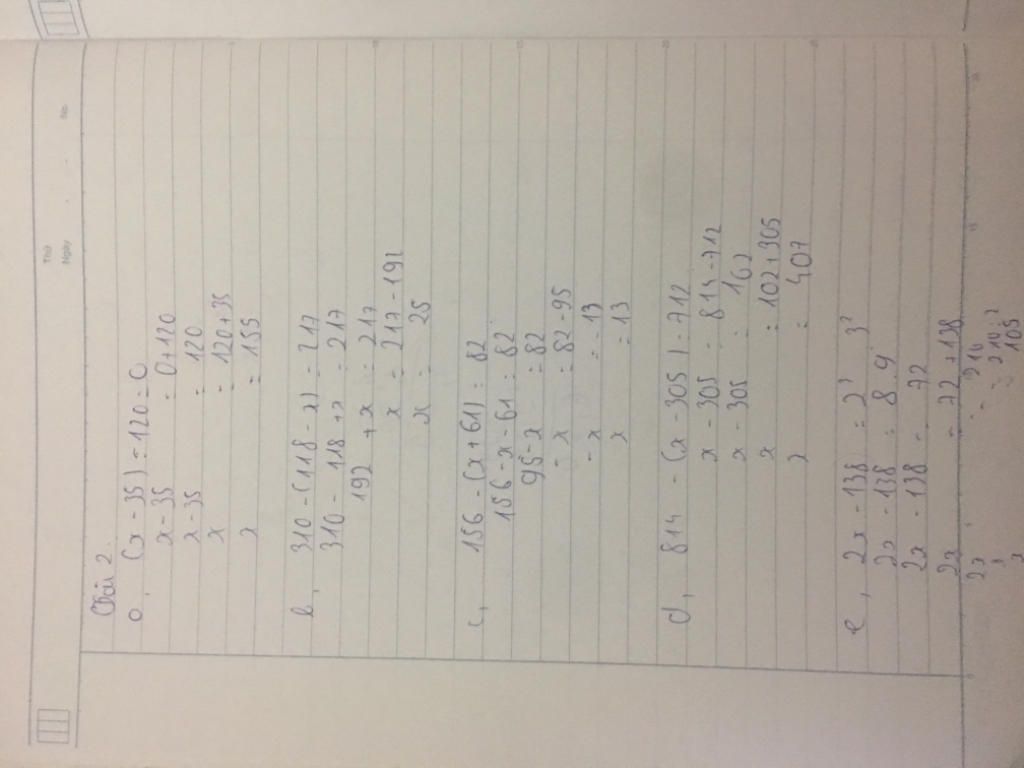 Thứ
Ngày
No.
Bài 2.
a, (x - 35) - 120 = 0
x - 35 = 0 + 120
x - 35 = 120
x = 120 + 35
x = 155
b, 310 - (118 - x) = 217
310 - 118 + x = 217
192 + x = 217
x = 217 - 192
x = 25
c, 156 - (x + 61) = 82
156 - x - 61 = 82
95 - x = 82
- x = 82 - 95
- x = - 13
x = 13
d, 814 - (x - 305) = 712
x - 305 = 814 - 712
x - 305 = 102
x = 102 + 305
x = 407
e, 2x - 138 = 2³ 3²
2x - 138 = 8.9
2x - 138 = 72
2x = 72 + 138
2x = 210
x = 210 : 2
x = 105